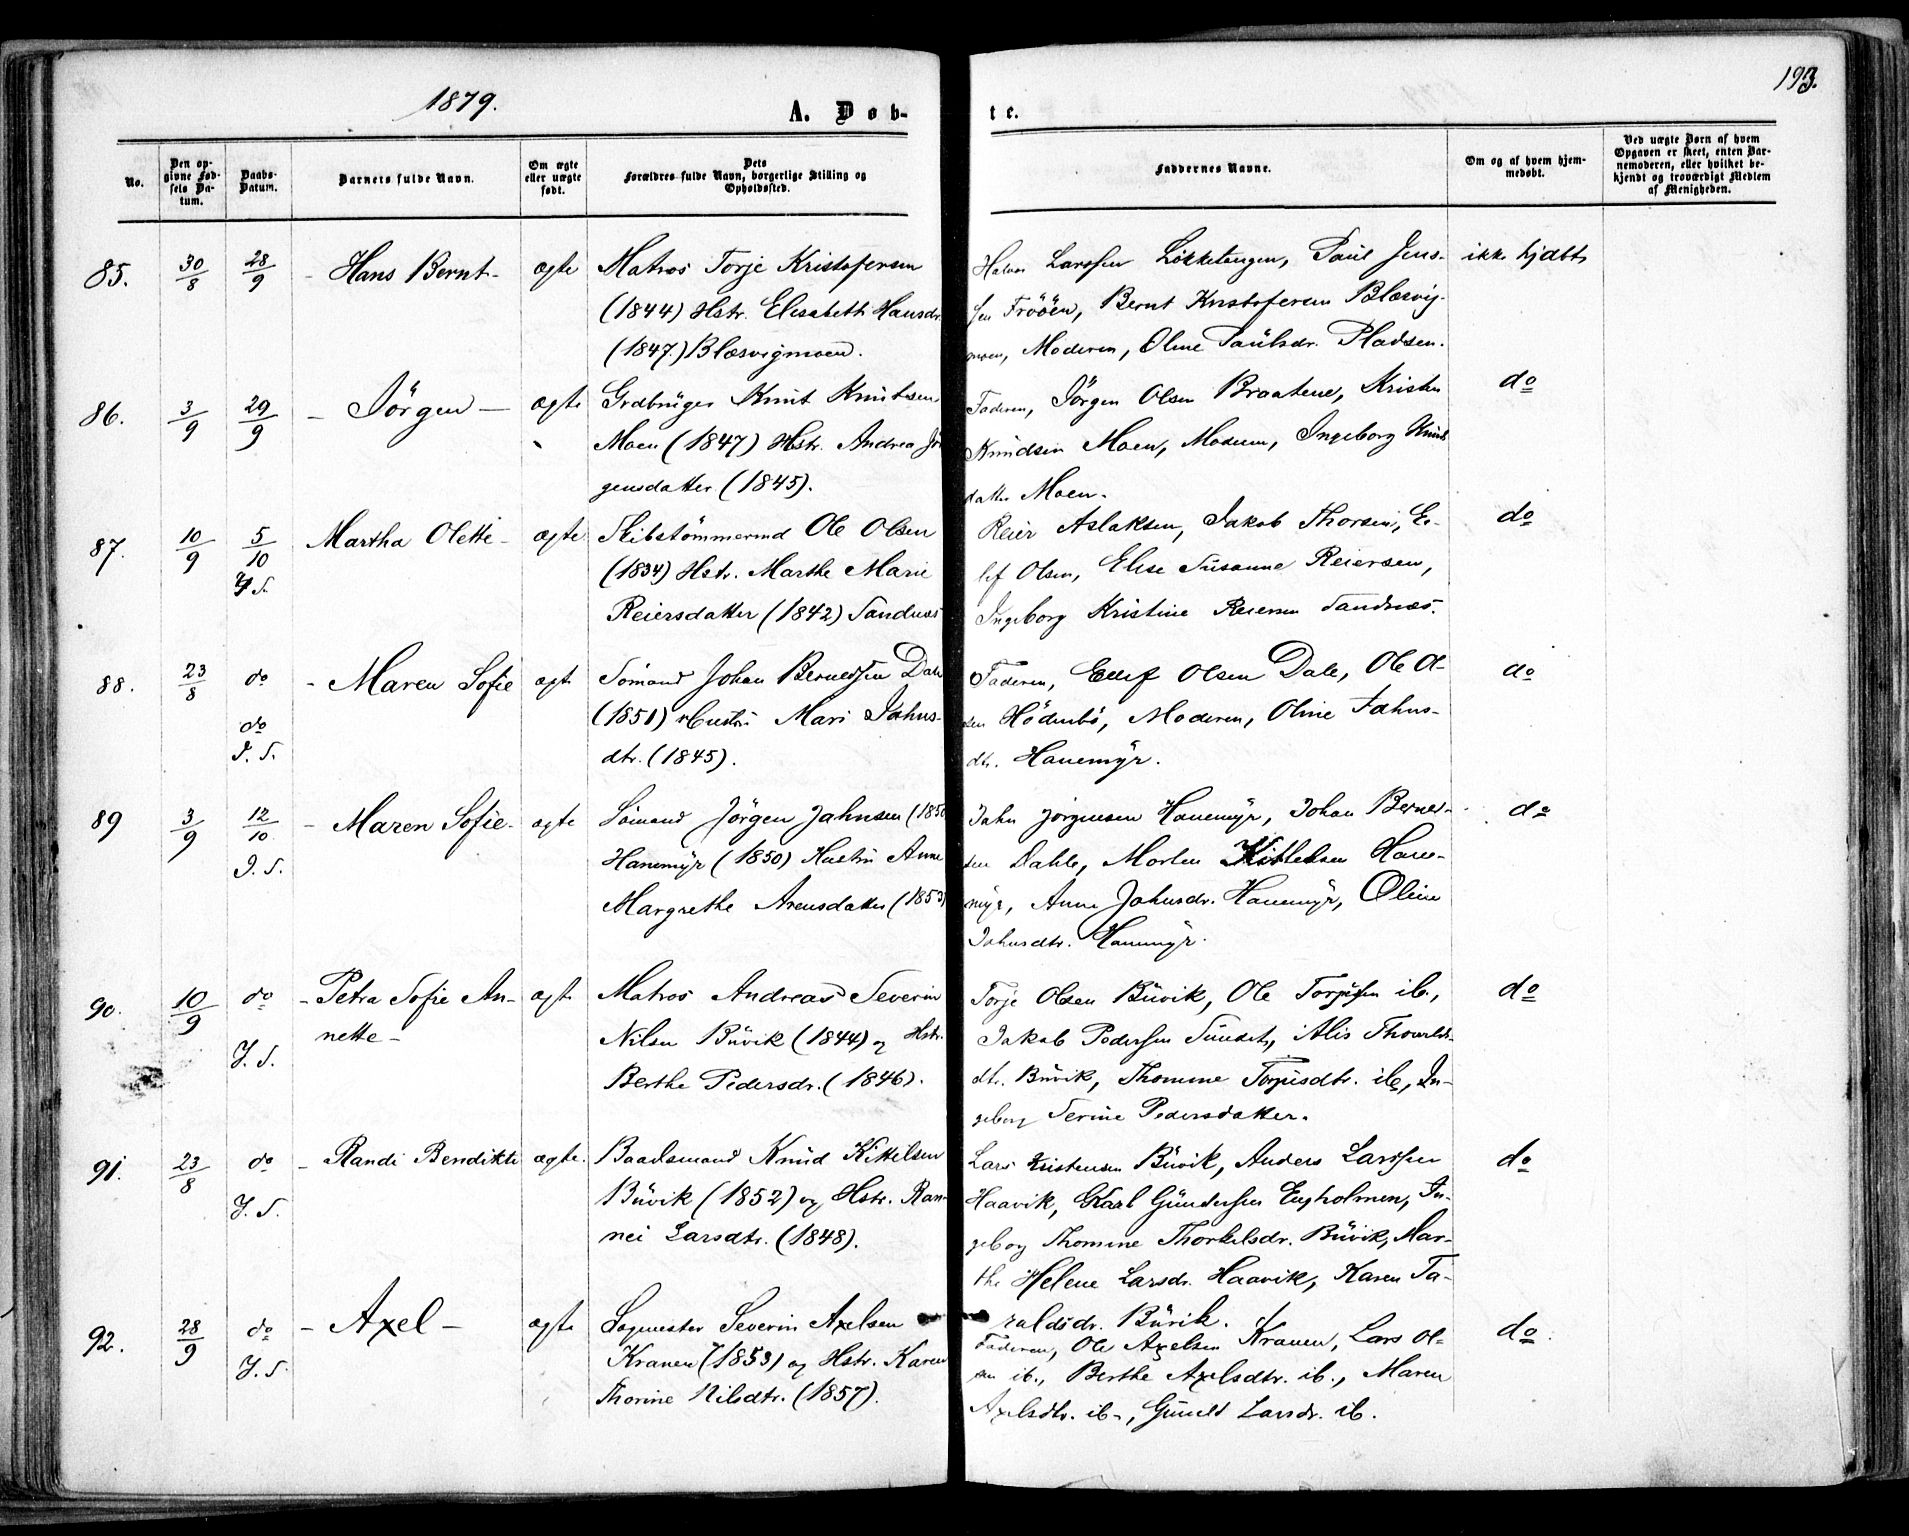 1879.
A. Døb-
te.
193.
No.
Den op-
givne Fød-
sels Da-
tum.
Daabs-
Datum.
Barnets fulde Navn.
Om ægte
eller uægte
født.
Dets
Forældres fulde Navn, borgerlige Stilling og
Opholdssted.
Faddernes Navne.
Om og af hvem hjem-
medøbt.
Ved uægte Børn af hvem
Opgaven er skeet, enten Bar-
nemoderen, eller hvilket be-
kjendt og troværdigt Medlem
af Menigheden.
85. 30/8 28/9 - Hans Bernt - ægte
Matros Torje Kristofersen
(1844) Hstr. Elisabeth Hansdr.
(1847.) Blæsvigmoen.
Halvor Larssen Lökketangen, Paul Jens-
sen Fröön, Bernt Kristofersen Blæsvig-
moen, Moderen, Oline Paulsdr. Pladsen.
ikke hjdøbt
86. 3/9 29/9 - Jörgen - ægte
Grdbrüger Knut Knutsen
Moen (1847) Hstr. Andrea Jör
gensdatter (1845).
Faderen, Jörgen Olsen Braatene, Kristen
Knudsen Moen, Moderen, Ingeborg Knuds
datter Moen.
do
87. 10/9 5/10 Martha Olette - ægte
I. S.
Skibstömmermd Ole Olsen
(1834) Hstr. Marthe Marie
Reiersdatter (1842) Sandnæs
Reier Aslaksen, Jakob Thorsen, El-
lef Olsen, Elise Susanne Reiersen,
Ingeborg Kristine Reiersen Sandnæs.
do
88. 23/8 do - Maren Sofie ægte
do
I. S.
Sömand Johan Berntssen Dale
(1851) Hustru Mari Jahns-
dtr. (1845).
Faderen, Ellef Olsen Dale, Ole Ol-
sen Hödnebö, Moderen, Oline Jahns-
dtr. Hanemÿr.
do
89 3/9 12/10 - Maren Sofie - ægte
I. S.
Sömand Jörgen Jahnsen (1850
Hanemÿr (1850) Hustru Anne
Margrethe Arensdatter (1853)
Jahn Jörgensen Hanemÿr, Johan Bernt-
sen Dahle, Morten Kittelsen Hane-
mÿr, Anne Jahnsdr. Hanemÿr, Oline
Jahnsdtr. Hanemÿr.
do
90. 10/9 do - Petra Sofie An- ægte
nette -
I. S.
Matros Andreas Severin
Nilsen Büvik (1844) og Hstr.
Berthe Pedersdr. (1846).
Torje Olsen Büvik, Ole Torjusen ib.,
Jakob Pederssen Sündet, Alis Thovalds-
dtr. Büvik, Thomine Torjusdtr. ib., In-
geborg Serine Pedersdatter.
do
91. 23/8 do - Randi Bendikte ægte.
I. S.
Baadsmand Knüd Kittelsen
Büvik (1852) og Hstr. Ran-
nei Larsdtr. (1848).
Lars Kristensen Büvik, Anders Larssen
Haavik, Karl Gunderssen Engholmen, In-
geborg Thomine Thorkelsdr. Büvik, Mar-
the Helene Larsdr. Haavik, Karen Ta-
raldsdr. Büvik.
do
92. 28/9 do - Axel - ægte
I. S.
Sagmester Severin Axelsen
Kranen (1853) og Hstr. Karen
Thorine Nilsdtr. (1857).
Faderen, Ole Axelsen Kranen, Lars Ol-
sen ib., Berthe Axelsdtr. ib., Maren
Axelsdtr. ib., Gunild Larsdr. ib.
do.